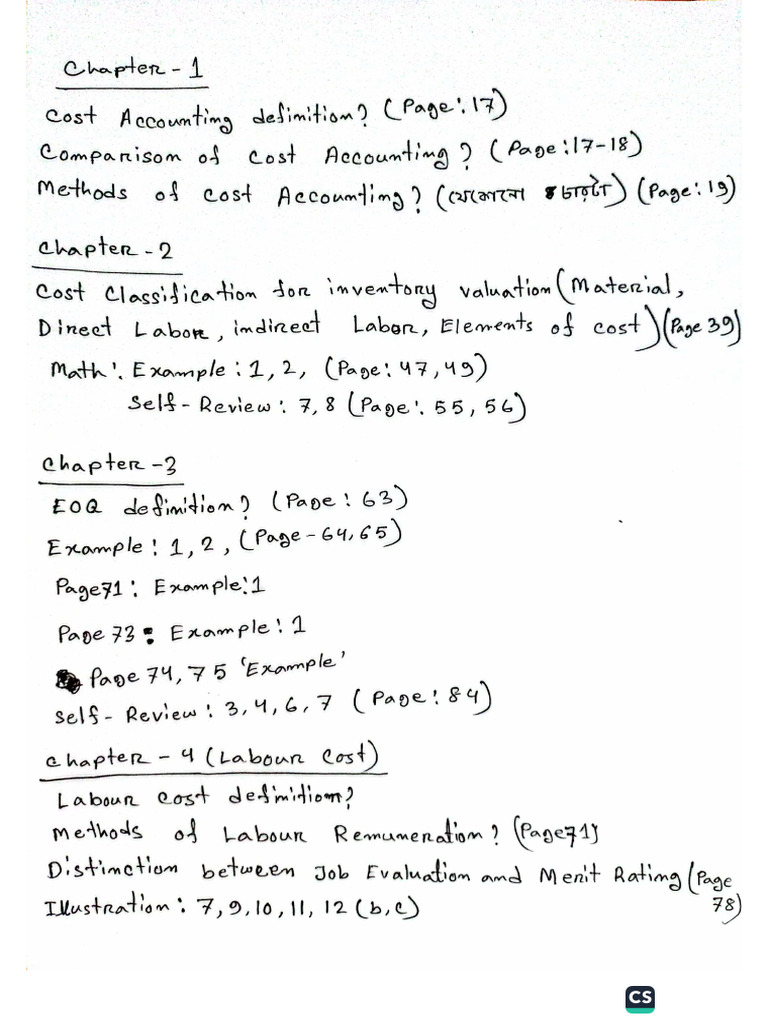 Chapter - 1
Cost Accounting definition? (Page:17)
Comparison of Cost Accounting? (Page:17-18)
Methods of Cost Accounting? (যেকোনো চারটে) (Page:19)
Chapter - 2
Cost Classification for inventory valuation (Material,
Direct Labor, indirect Labor, Elements of cost) (Page 39)
Math: Example: 1, 2, (Page: 47, 49)
Self-Review: 7, 8 (Page: 55, 56)
Chapter -3
EOQ definition? (Page: 63)
Example: 1, 2, (Page - 64, 65)
Page 71: Example:1
Page 73: Example: 1
Page 74, 75 'Example'
Self-Review: 3, 4, 6, 7 (Page: 84)
Chapter - 4 (Labour Cost)
Labour cost definition?
Methods of Labour Remuneration? (Page 71)
Distinction between Job Evaluation and Merit Rating (Page 78)
Illustration: 7, 9, 10, 11, 12 (b, c)
CS